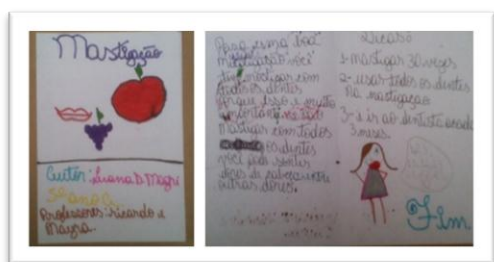 Mastigação
Autor: Luana D. Magri
5º ano C
Professores: ricardo e
Mayra.
Para uma boa
mastigação você
tem mastigar com
todos os dentes
Porque isso é muito
importante
Mastigar com todos
os dentes
você pode sentir
dores de cabeça e ou
outras dores.
Dicas
1- mastigar 30 vezes
2- usar todos os dentes
na mastigação
3- e ir ao dentista a cada
3 meses.
Fim